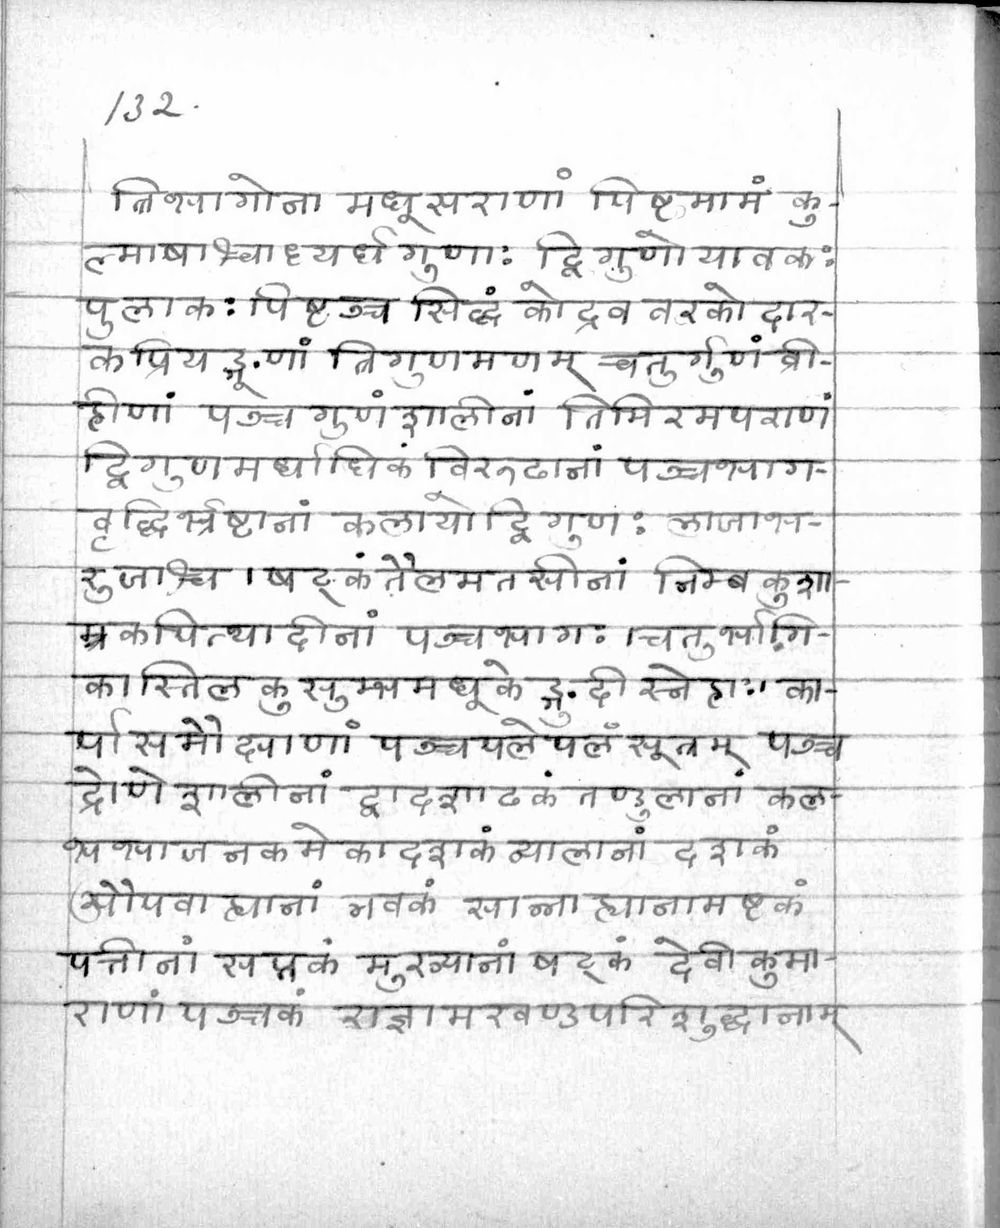 132.
त्रिभागोना मधूसराणां पिष्टमामं कु-
ल्माषाश्चाध्यर्धगुणाः द्विगुणो यावकः
पुलाकः पिष्टञ्च सिद्धं कोद्रव वरकोदार-
कप्रियङ्गूणां त्रिगुणमणम् चतुर्गुणं व्री-
हीणां पञ्चगुणं शालीनां तिमिरमपराणं
द्विगुणमर्धाधिकं विरूढानां पञ्चभाग-
वृद्धिर्भ्रष्टानां कलायो द्विगुणः लाजाभ-
रुजाश्च । षट्कं तैलमतसीनां निम्बकुशा-
म्रकपित्थादीनां पञ्चभागः । चतुर्भागि-
कास्तिलकुसुम्भमधूकेङ्गुदी स्नेहाः । का-
र्पासमौक्षाणां पञ्चपले पलं सूत्रम् पञ्च
द्रोणे शालीनां द्वादशाढकं तण्डुलानां कल-
भभाजनकमेकादशकं व्यालानां दशकं
औपवाह्यानां नवकं सान्नाह्यानामष्टकं
पत्तीनां सप्तकं मुख्यानां षट्कं देवीकुमा-
राणां पञ्चकं राज्ञामखण्डपरिशुद्धानाम्